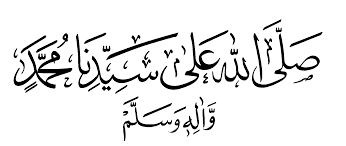 صَلَّى اللّٰه عَلَى سَيِّدِنَا مُحَمَّدٍ
وَّاٰلِهٖ وَسَلَّمْ